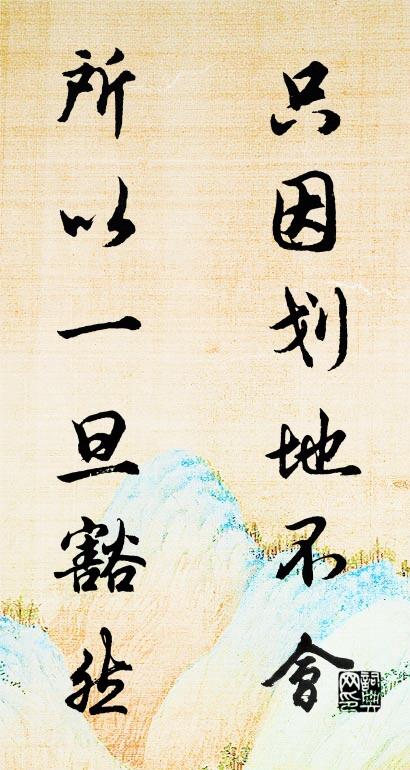 只因划地不會
所以一旦豁然